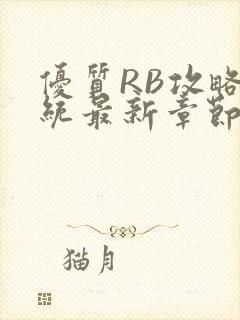 優質RB攻略
統最新章節
猫月